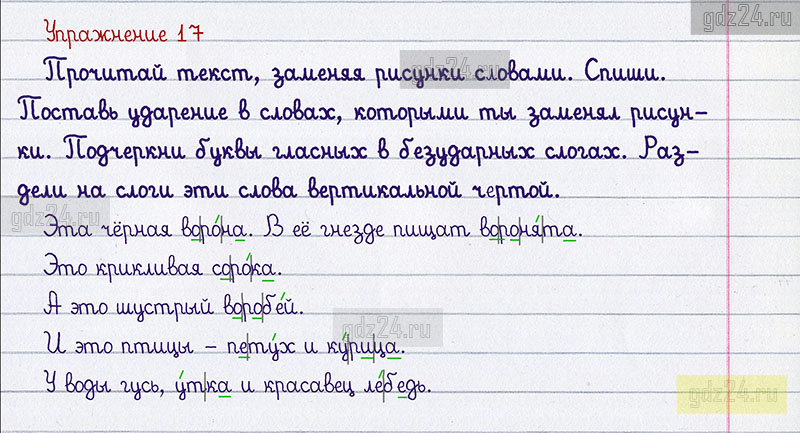 gdz24.ru
Упражнение 17
gdz24.ru
Прочитай текст, заменяя рисунки словами. Спиши.
Поставь ударение в словах, которыми ты заменял рисун-
ки. Подчеркни буквы гласных в безударных слогах. Раз-
дели на слоги эти слова вертикальной чертой.
gdz24.ru
Эта чёрная во|ро́|на. В её гнезде пищат во|ро|ня́|та.
Это крикливая со|ро́|ка.
А это шустрый во|ро|бе́й.
gdz24.ru
И это птицы – пе|ту́х и ку́|ри|ца.
У воды гусь, у́т|ка и красавец ле́|бедь.
gdz24.ru